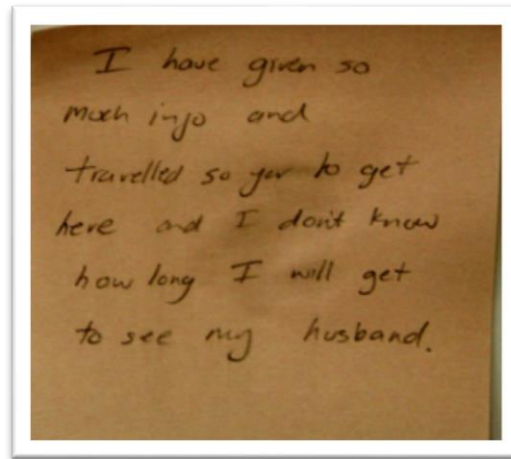 I have given so
much info and
travelled so far to get
here and I don't know
how long I will get
to see my husband.